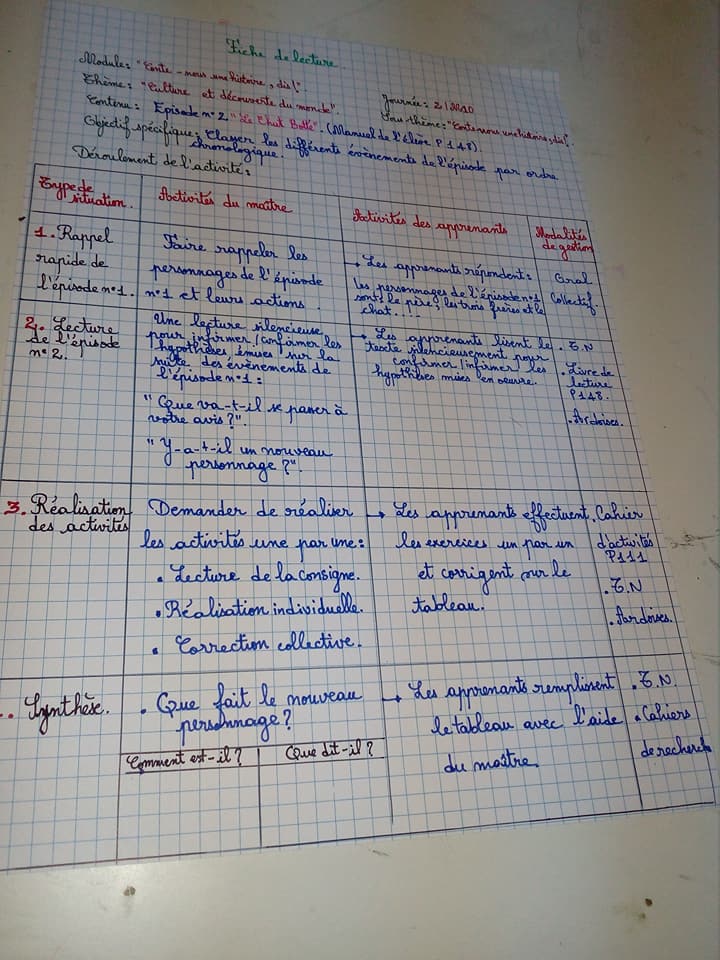 Fiche de lecture
Module : "Conte-nous une histoire, dis !".
Thème : "Culture et découverte du monde".
Journée : 2
Contenu : Episode n° 2 "Le Chat Botté". (Manuel de l'élève P 148).
Sous thème : "Conte nous une histoire, dis !".
Objectif spécifique : Classer les différents évènements de l'épisode par ordre
chronologique.
Déroulement de l'activité :
Type de
situation.
Activités du maître
Activités des apprenants
Modalités
de gestion
1. Rappel
rapide de
l'épisode n°1.
Faire rappeler les
personnages de l'épisode
n°1 et leurs actions.
→ Les apprenants répondent :
les personnages de l'épisode n°1
sont : le père, les trois frères et le
chat...!
Oral
Collectif.
2. Lecture
de l'épisode
n° 2.
Une lecture silencieuse
pour infirmer / confirmer les
hypothèses émises sur la
suite des évènements de
l'épisode n°1 :
"Que va-t-il se passer à
votre avis ?".
"Y-a-t-il un nouveau
personnage ?".
→ Les apprenants lisent le
texte silencieusement pour
confirmer / infirmer les
hypothèses mises en oeuvre.
. T.N
. Livre de
lecture
P148.
. Ardoises.
3. Réalisation
des activités
Demander de réaliser
les activités une par une :
. Lecture de la consigne.
. Réalisation individuelle.
. Correction collective.
→ Les apprenants effectuent
les exercices un par un
et corrigent sur le
tableau.
. Cahier
d'activités
P111
. T.N
. Ardoises.
Synthèse.
. Que fait le nouveau
personnage ?
Comment est-il ?
Que dit-il ?
→ Les apprenants remplissent
le tableau avec l'aide
du maître.
. T.N.
. Cahiers
de recherche